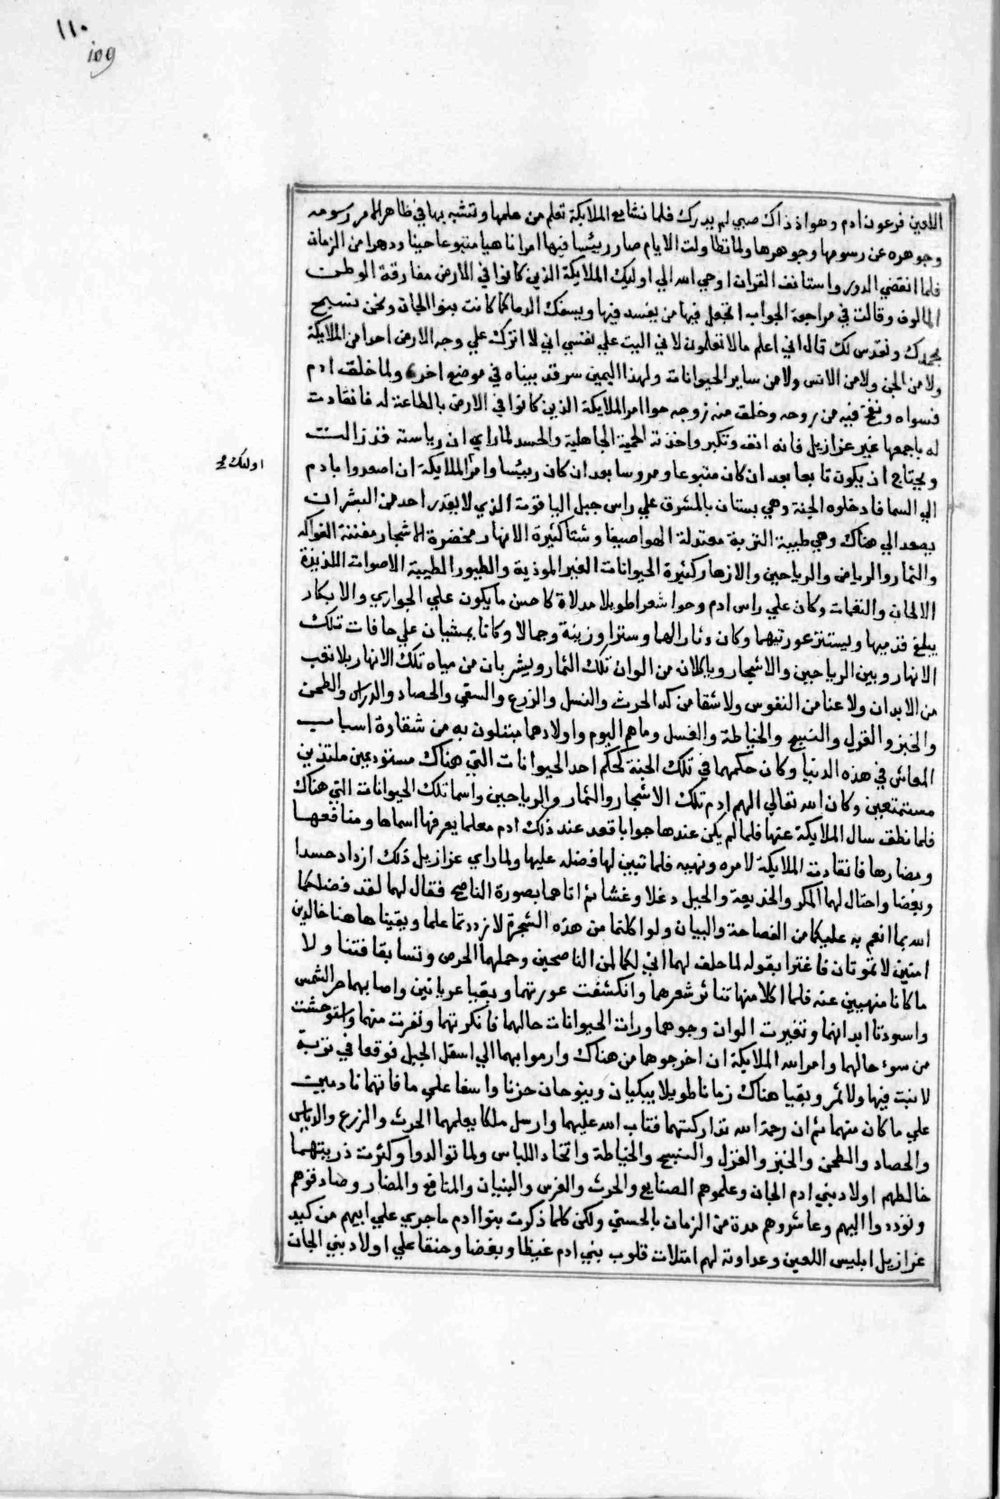 ١١٠
109
اللعين فرعون ادم وهو اذ ذاك صبي لم يدرك فلما نشا مع الملايكة تعلم من علمها وتشبه بها في ظاهر الامر رسومه
وجوهره عن رسومها وجوهرها ولما تطاولت الايام صار رييسا فيها امرا ناهيا متبوعا حينا ودهرا من الزمان
فلما انقضي الدور واستانف القران اوحي الله الي اوليك الملايكة الذين كانوا في الارض مفارقة الوطن
المالوف وقالت في مراجعة الجواب اتجعل فيها من يفسد فيها ويسفك الدما كما كانت بنو الجان ونحن نسبح
بحمدك ونقدس لك قال اني اعلم ما لا تعلمون لاني اليت علي نفسي اني لا اترك علي وجه الارض احدا من الملايكة
ولا من الجن ولا من الانس ولا من ساير الحيوانات ولهذا اليمين سر قد بيناه في موضع اخر ولما خلق ادم
فسواه ونفخ فيه من روحه وخلق منه زوجه حوا امر الملايكة الذين كانوا في الارض بالطاعة له فانقادت
له باجمعها غير عزازيل فانه انف وتكبر واخذته الحمية الجاهلية والحسد لما راي ان رياسته قد زالت
ويحتاج ان يكون تابعا بعد ان كان متبوعا ومروسا بعد ان كان رييسا وامر الملايكة ان اصعدوا بادم
اوليك
الي السما فادخلوه الجنة وهي بستان بالمشرق علي راس جبل الياقوت الذي لا يقدر احد من البشر ان
يصعد الي هناك وهي طيبة التربة معتدلة الهوا صيفا وشتا كثيرة الانهار مخضرة الاشجار مفننة الفواكه
والثمار والرياض والرياحين والازهار كثيرة الحيوانات الغير الموذية والطيور الطيبة الاصوات اللذيذة
الالحان والنغمات وكان علي راس ادم وحوا شعرا طويلا مدلاة كاحسن ما يكون علي الجواري والابكار
يبلغ قدميها ويستر عورتيهما وكان دثارا لهما وسترا وزينة وجمالا وكانا يمشيان علي حافات تلك
الانهار وبين الرياحين والاشجار وياكلان من الوان تلك الثمار ويشربان من مياه تلك الانهار بلا تعب
من الابدان ولا عنا من النفوس ولا شقا من كد الحرث والنسل والزرع والسقي والحصاد والدراس والطحن
والخبز والغزل والنسيج والخياطة والغسل وما هم اليوم واولادهما مبتلون به من شقاوة اسباب
المعاش في هذه الدنيا وكان حكمهما في تلك الجنة كحكم احد الحيوانات التي هناك مستودعين ملتذين
مستمتعين وكان الله تعالي الهم ادم تلك الاشجار والثمار والرياحين واسما تلك الحيوانات التي هناك
فلما نطق سال الملايكة عنها فلما لم يكن عندها جوابا قعد عند ذلك ادم معلما يعرفها اسماها ومنافعها
ومضارها فانقادت الملايكة لامره ونهيه فلما تبين لها فضله عليها ولما راي عزازيل ذلك ازداد حسدا
وبغضا واحتال لهما المكر والخديعة والحيل دغلا وغشا ثم اتاهما بصورة الناصح فقال لهما لقد فضلكما
الله بما انعم به عليكما من الفصاحة والبيان ولو اكلتما من هذه الشجرة لازددتما علما وبقيتما هاهنا خالدين
امنين لا تموتان فاغترا بقوله لما حلف لهما اني لكما لمن الناصحين وحملهما الحرص وتسابقا فتنا ولا
ما كانا منهيين عنه فلما اكلا منها تناثر شعرهما وانكشفت عورتهما وبقيا عريانين واصابهما حر الشمس
واسودتا ابدانهما وتغيرت الوان وجوههما ورات الحيوانات حالهما فانكرتهما ونفرت منهما واستوحشت
من سوء حالهما وامر الله الملايكة ان اخرجوهما من هناك وارموا بهما الي اسفل الجبل فوقعا في تربة
لا نبت فيها ولا ثمر وبقيا هناك زمانا طويلا يبكيان وينوحان حزنا واسفا علي ما فاتهما نادمين
علي ما كان منهما ثم ان رحمة الله تداركتهما فتاب الله عليهما وارسل ملكا يعلمهما الحرث والزرع والدياس
والحصاد والطحن والخبز والغزل والنسيج والخياطة واتخاذ اللباس ولما توالدوا وكثرت ذريتهما
خالطهم اولاد بني ادم الجان وعلموهم الصنايع والحرث والغرس والبنيان والمنافع والمضار وصادقوهم
وتوددوا اليهم وعاشروهم مدة من الزمان بالحسني ولكن كلما ذكرت بنوا ادم ما جري علي ابيهم من كيد
عزازيل ابليس اللعين وعداوته لهم امتلات قلوب بني ادم غيظا وبغضا وحنقا علي اولاد بني الجان